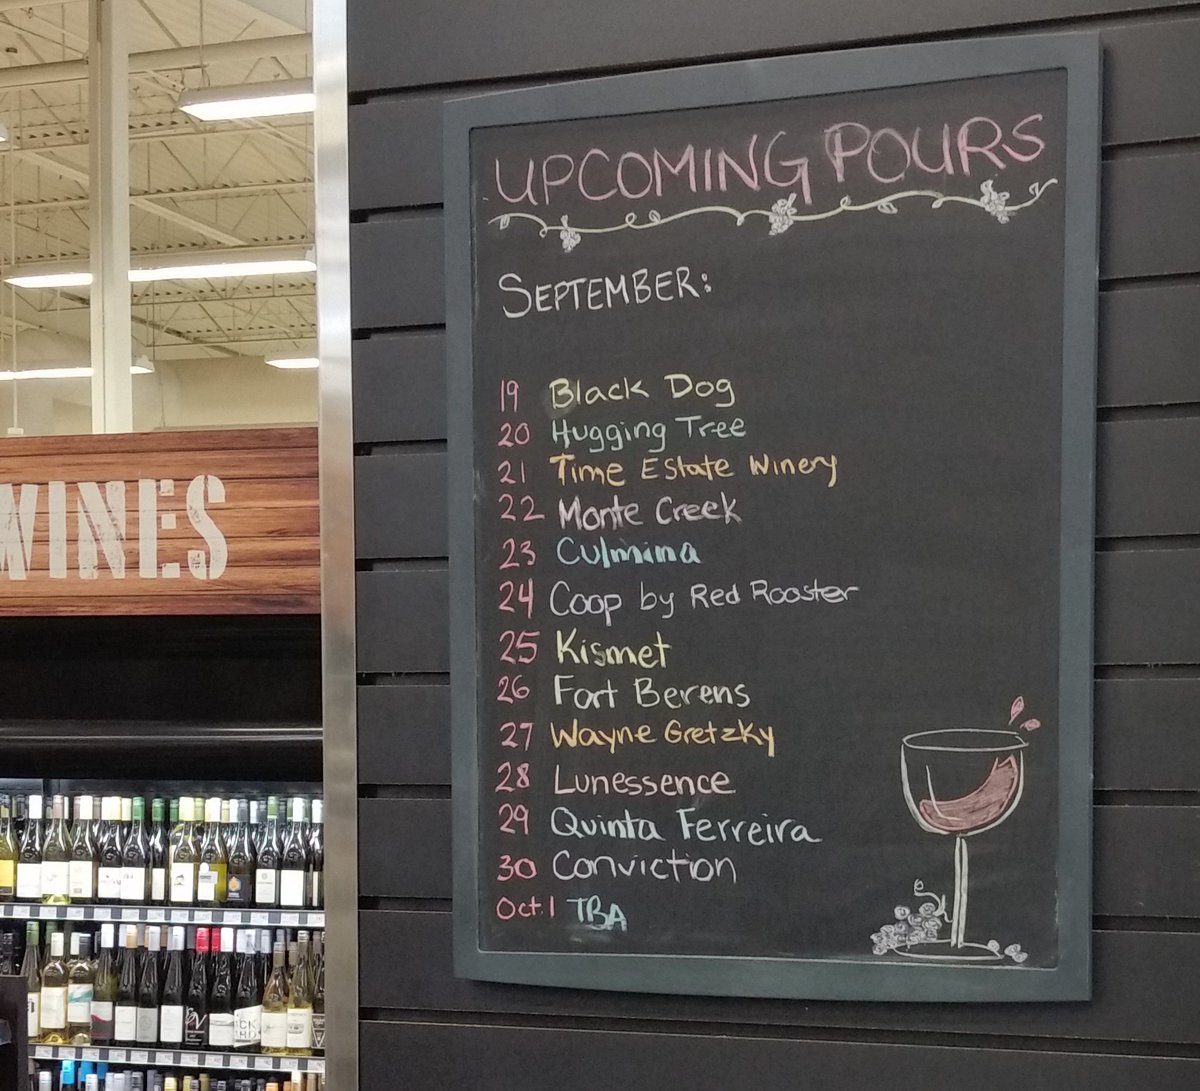 UPCOMING POURS
SEPTEMBER:
19 Black Dog
20 Hugging Tree
21 Time Estate Winery
22 Monte Creek
23 Culmina
24 Coop by Red Rooster
25 Kismet
26 Fort Berens
27 Wayne Gretzky
28 Lunessence
29 Quinta Ferreira
30 Conviction
Oct. 1 TBA
WINES